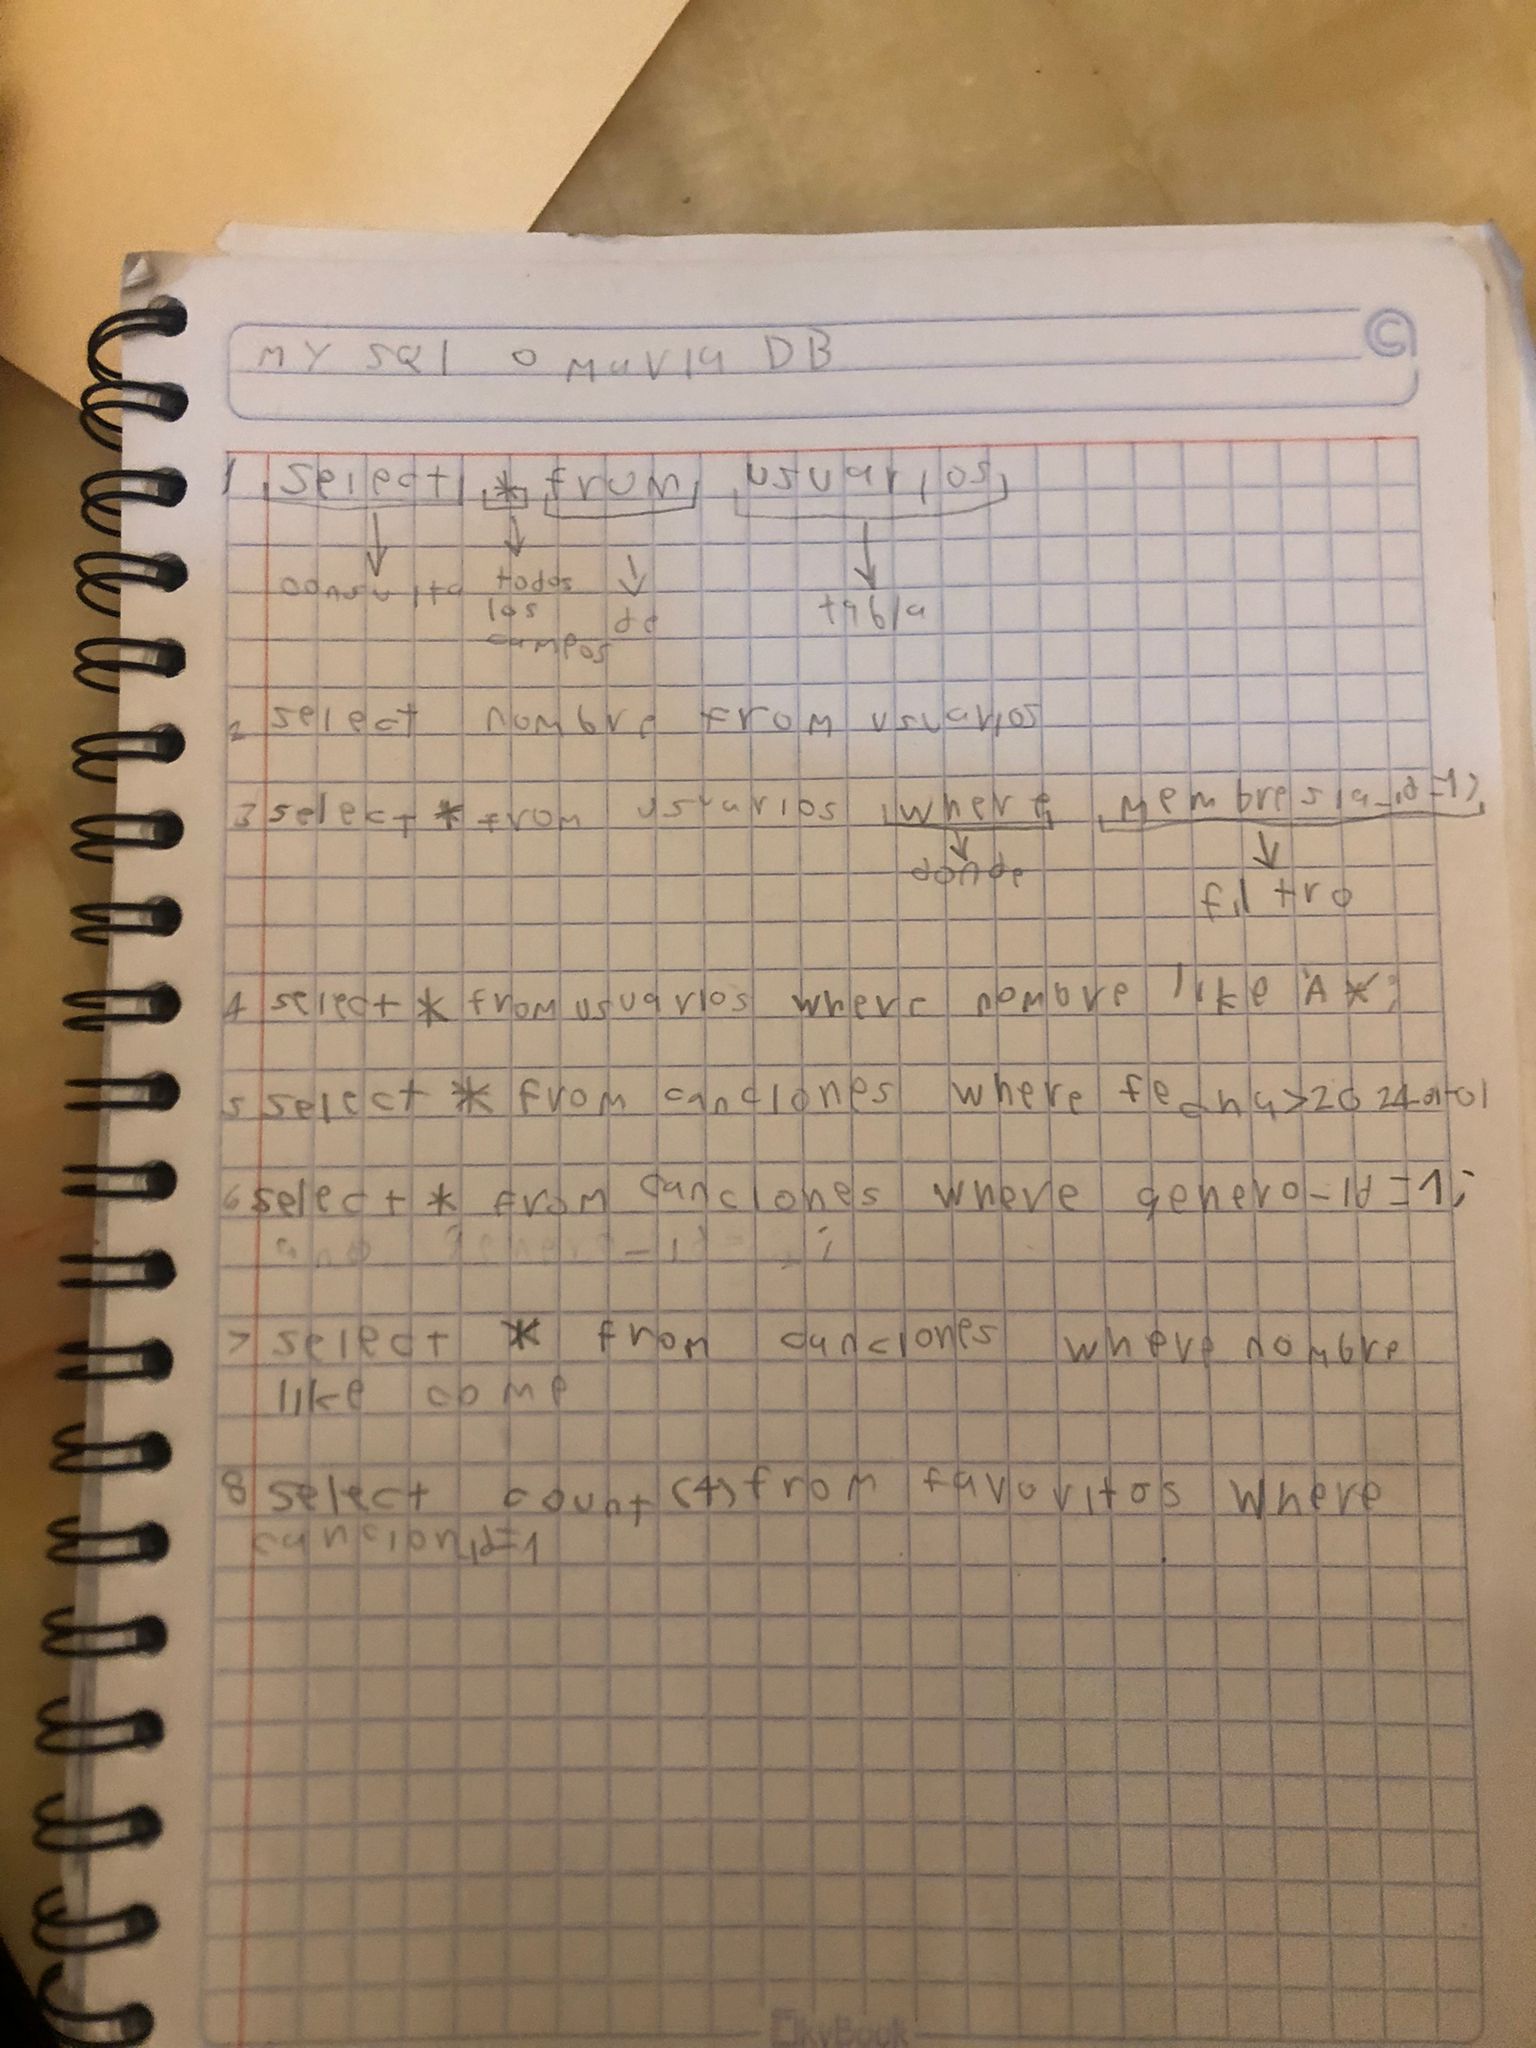 my sql o Maria DB
1 select * from usuarios
consulta todos de tabla
los
campos
2 select nombre from usuarios
3 select * from usuarios where membresia_id=1;
donde
filtro
4 select * from usuarios where nombre like A*;
5 select * from canciones where fecha>2024-01-01
6 select * from canciones where genero-id=1;
7 select * from canciones where nombre
like come
8 select count (4) from favoritos where
cancion_id=1
kyBook